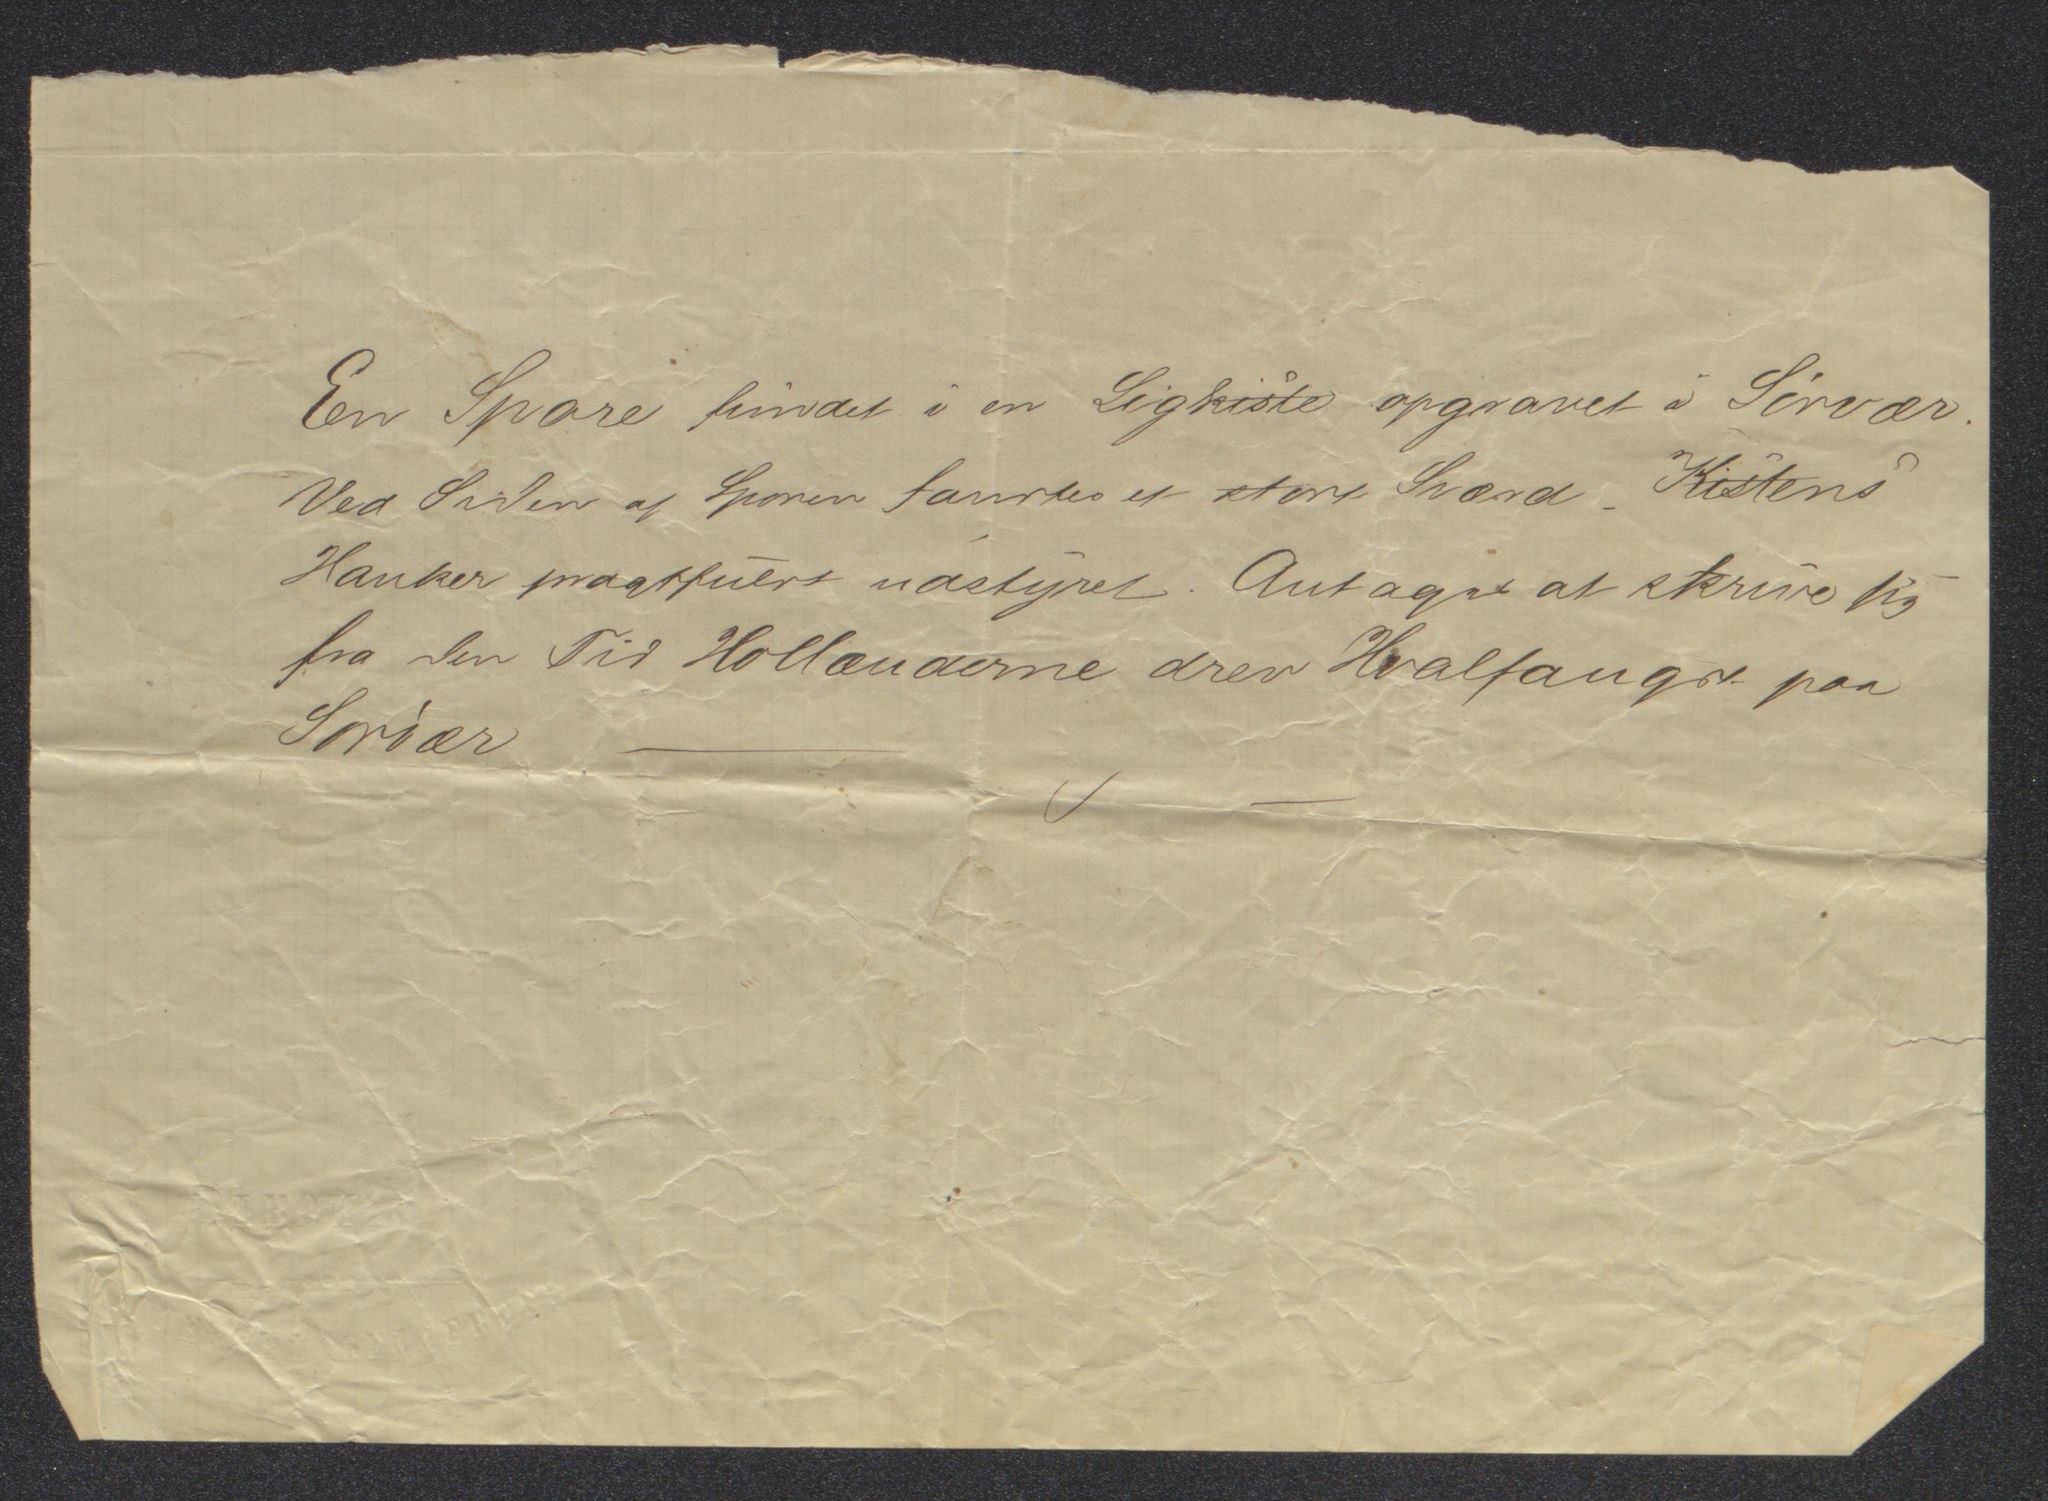 En Spore fundet i en Ligkiste opgravet i Sörvær.
Ved Siden af Sporen fandtes et stort Sværd - Kistens
Hanker pragtfuldt udstyret. Antages at skrive sig
fra den Tid Hollænderne drev Hvalfangst paa
Sörvær